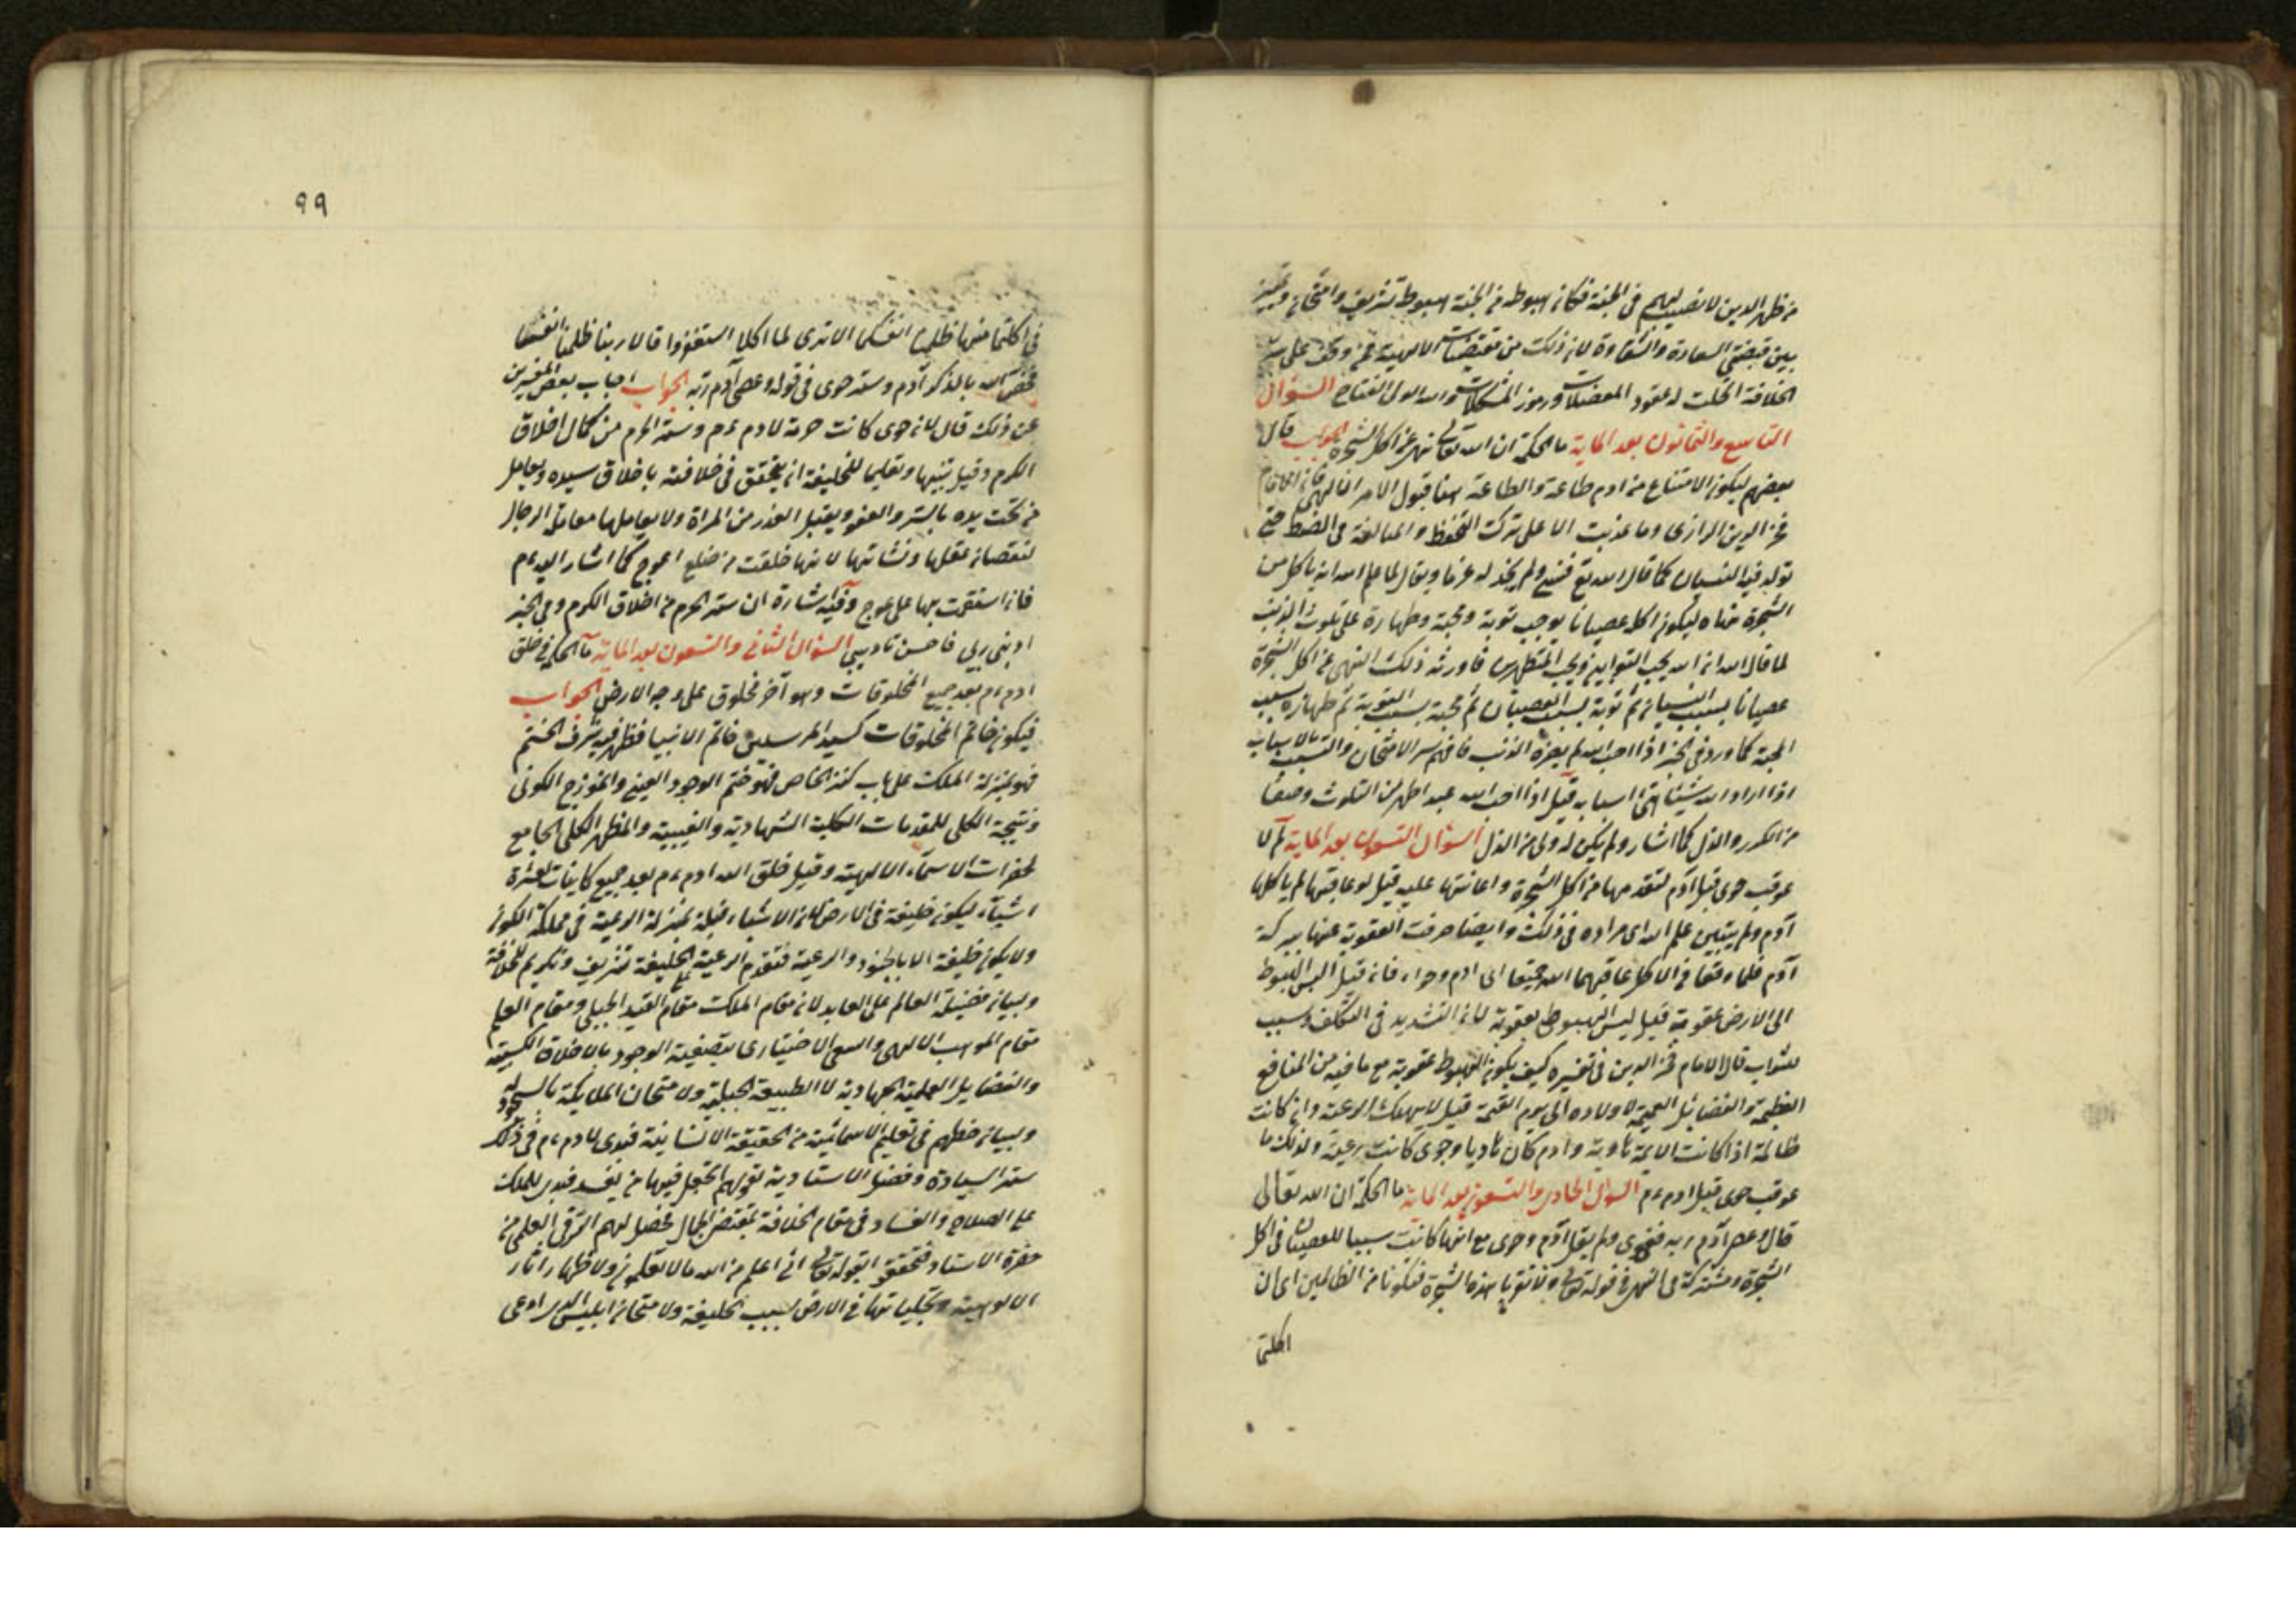 من ظهر الدين لا نصيب لهم في الجنة فكان هبوطه من الجنة هبوط تشريف وامتحان وتميز
بين قبضتي السعادة والشقاوة لان ذلك من مقتضيات الالهية فمن وقف على سر
الخلافة انحلت له عقود المعضلات ورموز المشكلات والله ولي الفتاح السؤال
التاسع والثمانون بعد الماية ما الحكمة ان الله تعالى نهى عن اكل الشجرة الجواب قال
بعضهم ليكون الامتناع من ادم طاعة والطاعة هنا قبول الامر الالهى قال الامام
فخر الدين الرازى وما عذبت الا على ترك التحفظ والمبالغة في الضبط حتى
تولد فيه النسيان كما قال الله تع فنسى ولم نجد له عزما ويقال لما علم الله انه ياكل من
الشجرة نهاه ليكون اكله عصيانا يوجب توبة ومحبة وطهارة على تلوث الذنب
لما قال الله ان الله يحب التوابين ويحب المتطهرين فاورثه ذلك النهى عن اكل الشجرة
عصيانا بسبب النسيان ثم توبة بسبب العصيان ثم محبة بسبب التوبة ثم طهارة بسبب
المحبة كما ورد في الخبر اذا احب الله لم يضره الذنب فافهم سر الامتحان والتسبب بالاسباب
اذا اراد الله شيئا هيأ اسبابه قيل اذا احب الله عبدا طهر من التلوث وصفا
من الكدر والذل كما اشار ولم يكن له ولى من الذل السؤال التسعون بعد الماية لم لا
عوقب حوى قبل آدم لتقدمها من اكل الشجرة واعانتها عليه قيل لو عاقبتها لم ياكلها
آدم ولم يتبين علم الله اى مراده في ذلك وايضا صرفت العقوبة عنها ببركة
آدم فلما وقعا في الاكل عاقبهما الله جميعا اى ادم وحواء فان قيل اليس الهبوط
الى الارض عقوبة قيل ليس الهبوط بعقوبة لان التشديد في التكلف وسبب
للثواب قال الامام فخر الدين في تفسيره كيف يكون الهبوط عقوبة مع ما فيه من المنافع
العظيمة والفضايل العميمة لاولاده الى يوم القيمة قيل لا يهلك الرعية وان كانت
ظالمة اذا كانت الايمة هاوية وادم كان هاديا وحوى كانت رعية ولذلك ما
عوقب حوى قبل ادم ءم السؤال الحادى والتسعون بعد الماية ما الحكمة ان الله تعالى
قال وعصى آدم ربه فغوى ولم يقل آدم وحوى مع انها كانت سببا للعصيان في اكل
الشجرة ومشتركة في النهى في قوله تعالى ولا تقربا هذه الشجرة فتكونا من الظالمين اى ان
اكلتما
٩٩
في اكلتما منها ظلمتما انفسكما الا ترى لما اكلا استغفروا قالا ربنا ظلمنا انفسنا
فخص الله بالذكر آدم وستر حوى في قوله وعصى آدم ربه الجواب اجاب بعض المفسرين
عن ذلك قال لان حوى كانت حرمة لادم ءم وستر الحرم من كمال اخلاق
الكرم وقيل تنبيها وتعليما للخليفة ان يتحقق في خلافته باخلاق سيده ويعامل
من تحت يده بالستر والعفو ويقبل العذر من المراة ولا يعاملها معاملة الرجال
لنقصان عقلها ونشاتها لانها خلقت من ضلع اعوج كما اشار اليه ءم
فان استقمت بها على عوج وفيه اشارة ان ستر الحرم من اخلاق الكرم وفي الخبر
ادبنى ربى فاحسن تاديبي السؤال الثانى والتسعون بعد الماية ما الحكمة في خلق
ادم ءم بعد جميع المخلوقات وهو آخر مخلوق على وجه الارض الجواب
فيكون خاتم المخلوقات كسيد المرسلين خاتم الانبيا فظهر فيه شرف الختم
فهو بمنزلة الملك على باب كنز الخاص فهو ختم الوجود العيني والنموذج الكونى
ونتيجة الكلى للمقدمات الكلية الشهادية والغيبية والمظهر الكلى الجامع
لحضرات الاسماء الالهية وقيل خلق الله ادم ءم بعد جميع كاينات لعشرة
اشياء ليكون خليفة في الارض لان الاشياء قبله بمنزلة الرعية في مملكة الكون
ولا يكون خليفة الا بالجنود والرعية فتقدم الرعية على الخليفة تشريف وتكريم للخلافة
وبيان فضيلة العالم على العابد لان مقام الملك مقام القيد الجبلى ومقام العلم
مقام الموهب الالهى والسعى الاختيارى بتصفية الوجود بالاخلاق الكسبية
والفضايل العملية الجهادية لا الطبيعة الجبلية ولامتحان الملايكة بالسجود له
وبيان حظهم في تعليم الاسمائية من الحقيقة الانسانية فنودى لادم ءم في ذلك
ستر السيادة وفضل الاستادية بقولهم اتجعل فيها من يفسد فيها للملك
على الصلاح والفساد في مقام الخلافة بمقتضى الجمال فحصل لهم الترقى العلمى من
حضرة الاستاد فتحققوا بقوله تعالى انى اعلم من الله ما لا تعلمون ولاظهار اثار
الالوهية وتجلياتها في الارض بسبب الخليفة ولامتحان ابليس الذى ادعى